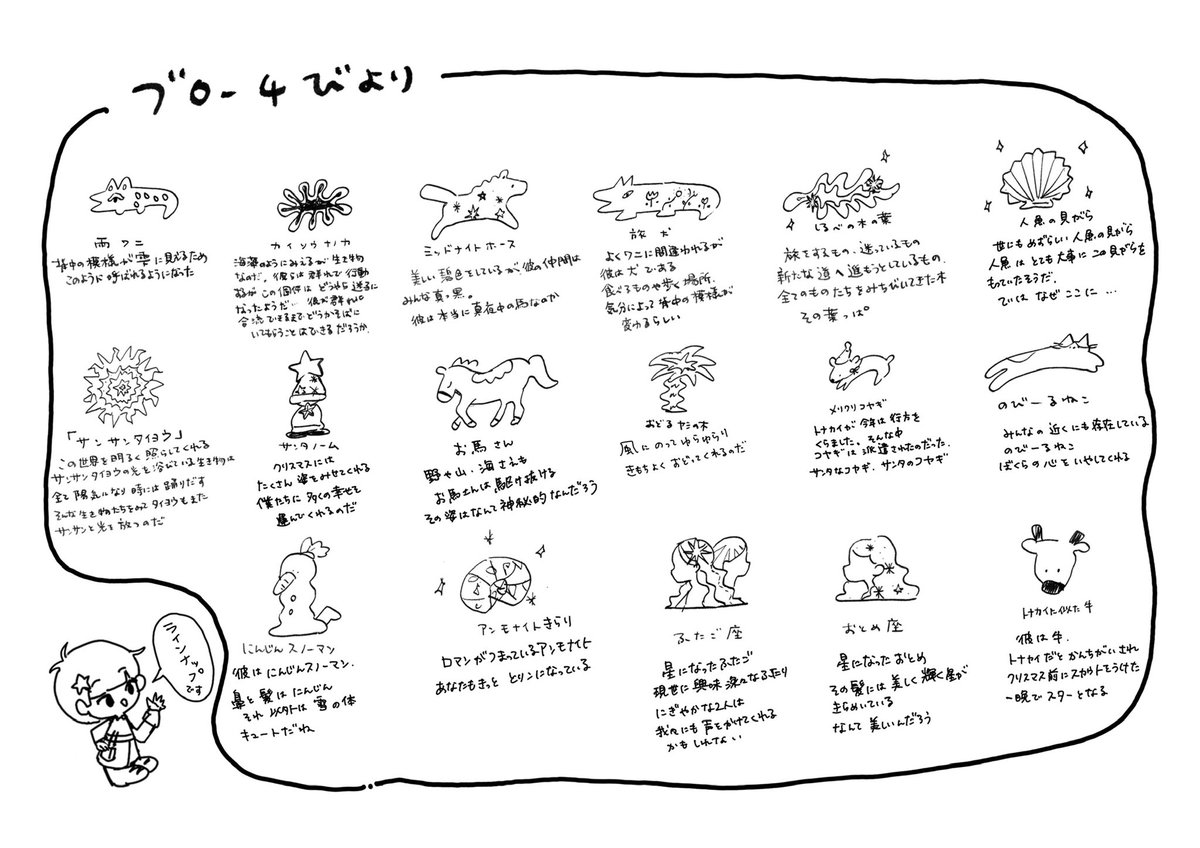 ブローチびより
雨ワニ
背中の模様が雫に見えるため
このように呼ばれるようになった
カイソウナノカ
海藻のようにみえるが生き物
なのだ。彼らは群れで行動
するがこの個体はどうやら迷子に
なったようだ… 彼が群れに
合流できるまでどうかそばに
いてもらうことはできるだろうか
ミッドナイトホース
美しい碧色をしているが彼の仲間は
みんな真っ黒。
彼は本当に真夜中の馬なのか
旅犬
よくワニに間違われるが
彼は犬である
食べるものや歩く場所、
気分によって背中の模様が
変わるらしい
しるべの木の葉
旅をするもの、迷っているもの
新たな道へ進もうとしているもの、
全てのものたちをみちびいてきた木
その葉っぱ。
人魚の貝がら
世にもめずらしい人魚の貝がら
人魚はとても大事にこの貝がらを
もっていたそうだ。
ではなぜここに…
「サンサンタイヨウ」
この世界を明るく照らしてくれる
サンサンタイヨウの光を浴びている生き物は
全て陽気になり時には踊りだす
そんな生き物たちをみてタイヨウもまた
サンサンと光を放つのだ
サンタノーム
クリスマスには
たくさん姿をみせてくれる
僕たちに多くの幸せを
運んでくれるのだ
お馬さん
野や山・海さえも
お馬さんは駆け抜ける
その姿はなんて神秘的なんだろう
おどるヤシの木
風にのってゆらゆらり
きもちよくおどってくれるのだ
メリクリコヤギ
トナカイが今年は行方を
くらました。そんな中
コヤギに派遣されたのだった。
サンタなコヤギ、サンタのコヤギ
のびーるねこ
みんなの近くにも存在している
のびーるねこ
ぼくらの心をいやしてくれる
にんじんスノーマン
彼はにんじんスノーマン。
鼻と髪はにんじん
それ以外は雪の体
キュートだね
アンモナイトきらり
ロマンがつまっているアンモナイト
あなたもきっと とりこになっている
ふたご座
星になったふたご
現世に興味深々なふたり
にぎやかな2人は
我々にも声をかけてくれる
かもしれない
おとめ座
星になったおとめ
その髪には美しく輝く星が
きらめいている
なんて美しいんだろう
トナカイに似た牛
彼は牛。
トナカイだとかんちがいされ
クリスマス前にスカウトをうけた
一晩でスターとなる
ラインナップ
です